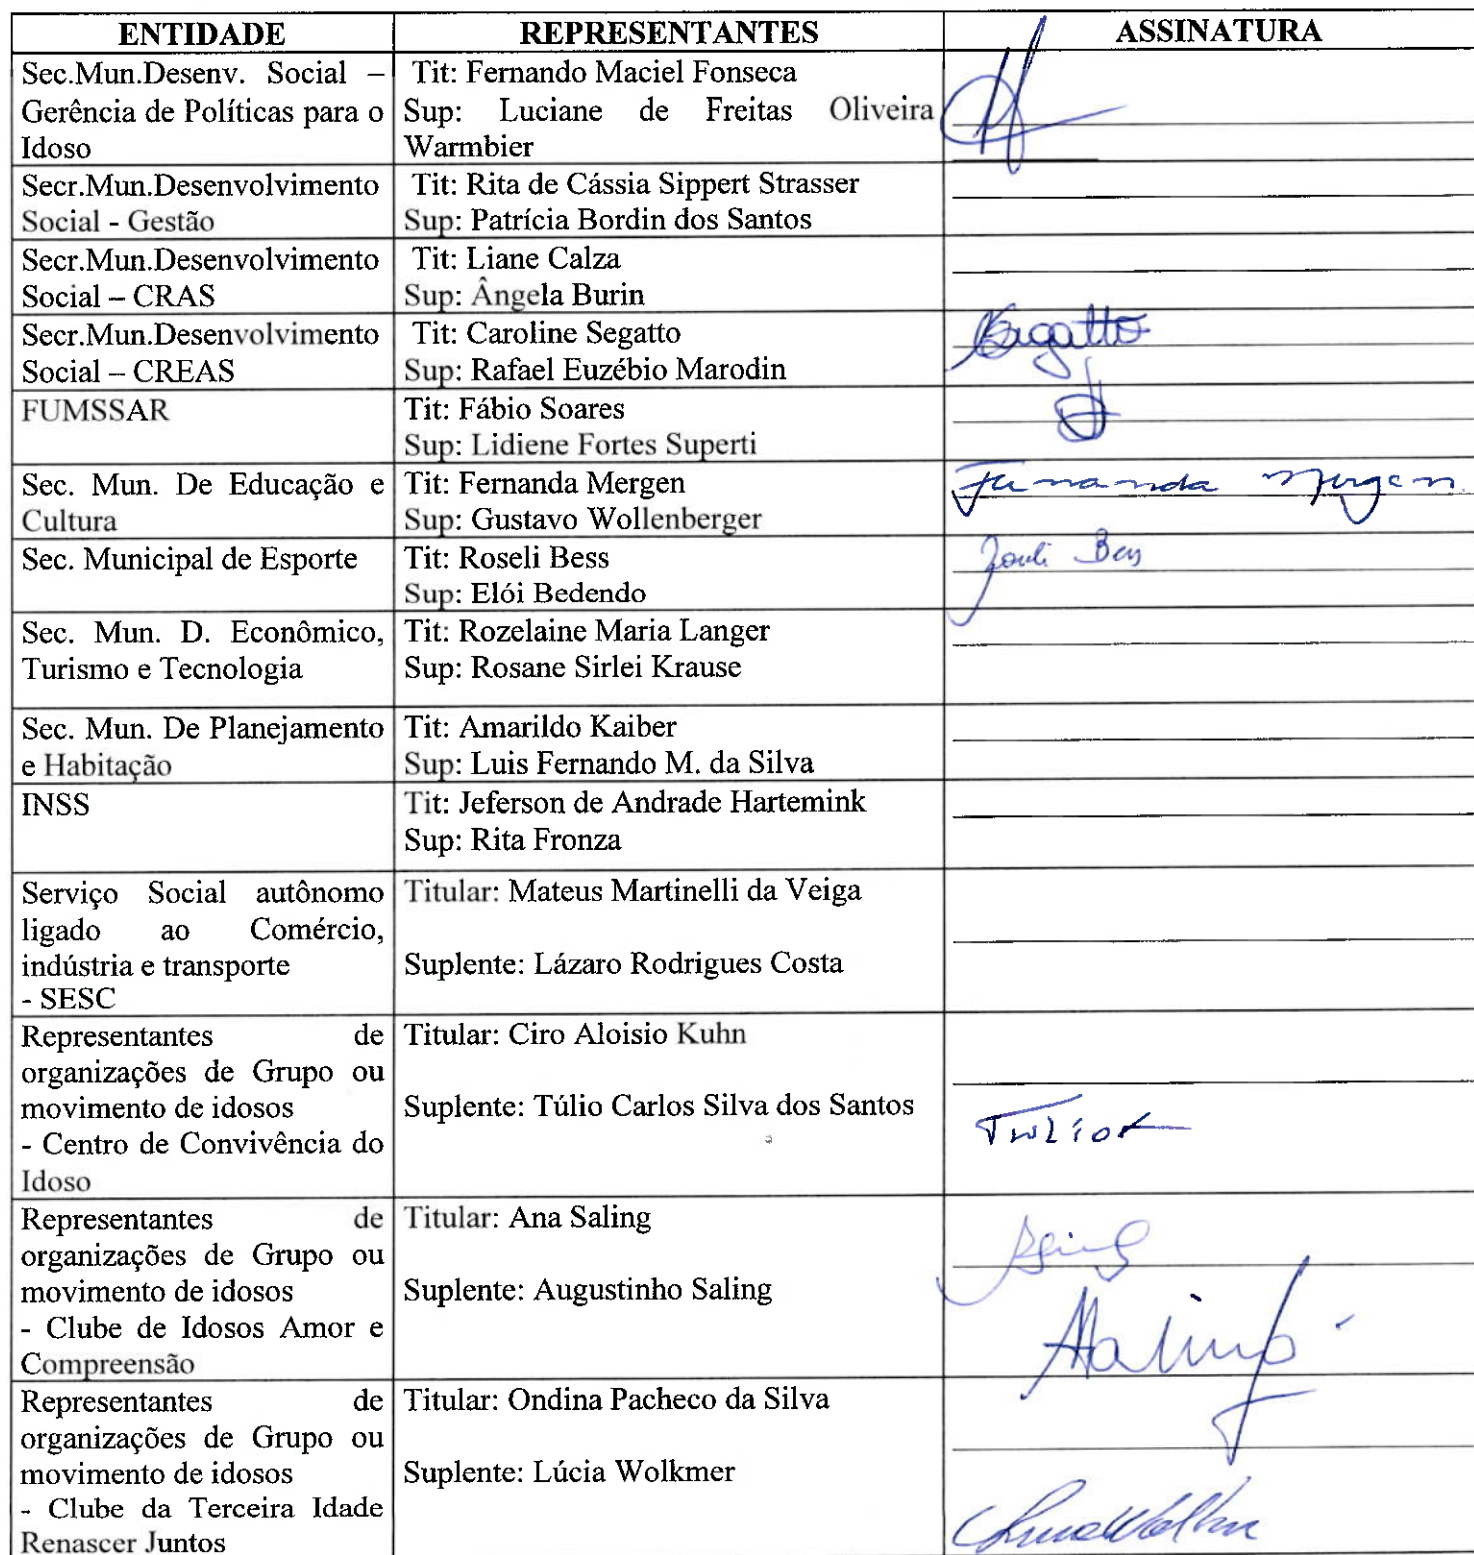 ENTIDADE REPRESENTANTES ASSINATURA
Sec.Mun.Desenv. Social –
Gerência de Políticas para o
Idoso
Tit: Fernando Maciel Fonseca
Sup: Luciane de Freitas Oliveira
Warmbier
Secr.Mun.Desenvolvimento
Social - Gestão
Tit: Rita de Cássia Sippert Strasser
Sup: Patrícia Bordin dos Santos
Secr.Mun.Desenvolvimento
Social – CRAS
Tit: Liane Calza
Sup: Ângela Burin
Secr.Mun.Desenvolvimento
Social – CREAS
Tit: Caroline Segatto
Sup: Rafael Euzébio Marodin
FUMSSAR
Tit: Fábio Soares
Sup: Lidiene Fortes Superti
Sec. Mun. De Educação e
Cultura
Tit: Fernanda Mergen
Sup: Gustavo Wollenberger
Fernanda Mergen
Sec. Municipal de Esporte
Tit: Roseli Bess
Sup: Elói Bedendo
Sec. Mun. D. Econômico,
Turismo e Tecnologia
Tit: Rozelaine Maria Langer
Sup: Rosane Sirlei Krause
Sec. Mun. De Planejamento
e Habitação
Tit: Amarildo Kaiber
Sup: Luis Fernando M. da Silva
INSS
Tit: Jeferson de Andrade Hartemink
Sup: Rita Fronza
Serviço Social autônomo
ligado ao Comércio,
indústria e transporte
- SESC
Titular: Mateus Martinelli da Veiga
Suplente: Lázaro Rodrigues Costa
Representantes de
organizações de Grupo ou
movimento de idosos
- Centro de Convivência do
Idoso
Titular: Ciro Aloisio Kuhn
Suplente: Túlio Carlos Silva dos Santos
Representantes de
organizações de Grupo ou
movimento de idosos
- Clube de Idosos Amor e
Compreensão
Titular: Ana Saling
Suplente: Augustinho Saling
Representantes de
organizações de Grupo ou
movimento de idosos
- Clube da Terceira Idade
Renascer Juntos
Titular: Ondina Pacheco da Silva
Suplente: Lúcia Wolkmer